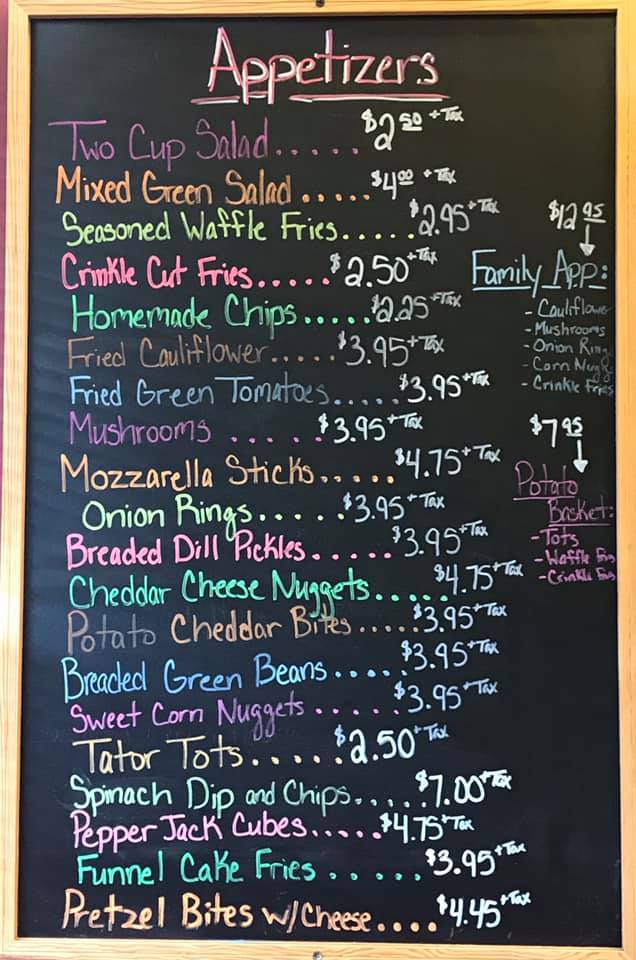 Appetizers
Two Cup Salad..... $2.50 + Tax
Mixed Green Salad..... $4.00 + Tax
Seasoned Waffle Fries..... $2.95 + Tax
Crinkle Cut Fries..... $2.50 + Tax
Homemade Chips..... $2.25 + Tax
Fried Cauliflower..... $3.95 + Tax
Fried Green Tomatoes..... $3.95 + Tax
Mushrooms ..... $3.95 + Tax
Mozzarella Sticks..... $4.75 + Tax
Onion Rings..... $3.95 + Tax
Breaded Dill Pickles..... $3.95 + Tax
Cheddar Cheese Nuggets..... $4.75 + Tax
Potato Cheddar Bites..... $3.95 + Tax
Breaded Green Beans..... $3.95 + Tax
Sweet Corn Nuggets..... $3.95 + Tax
Tator Tots..... $2.50 + Tax
Spinach Dip and Chips..... $7.00 + Tax
Pepper Jack Cubes..... $4.75 + Tax
Funnel Cake Fries ..... $3.95 + Tax
Pretzel Bites w/Cheese.... $4.45 + Tax
$12.95
Family App:
- Cauliflower
- Mushrooms
- Onion Ring
- Corn Nugg
- Crinkle Fries
$7.95
Potato
Basket:
- Tots
- Waffle Fries
- Crinkle Fries